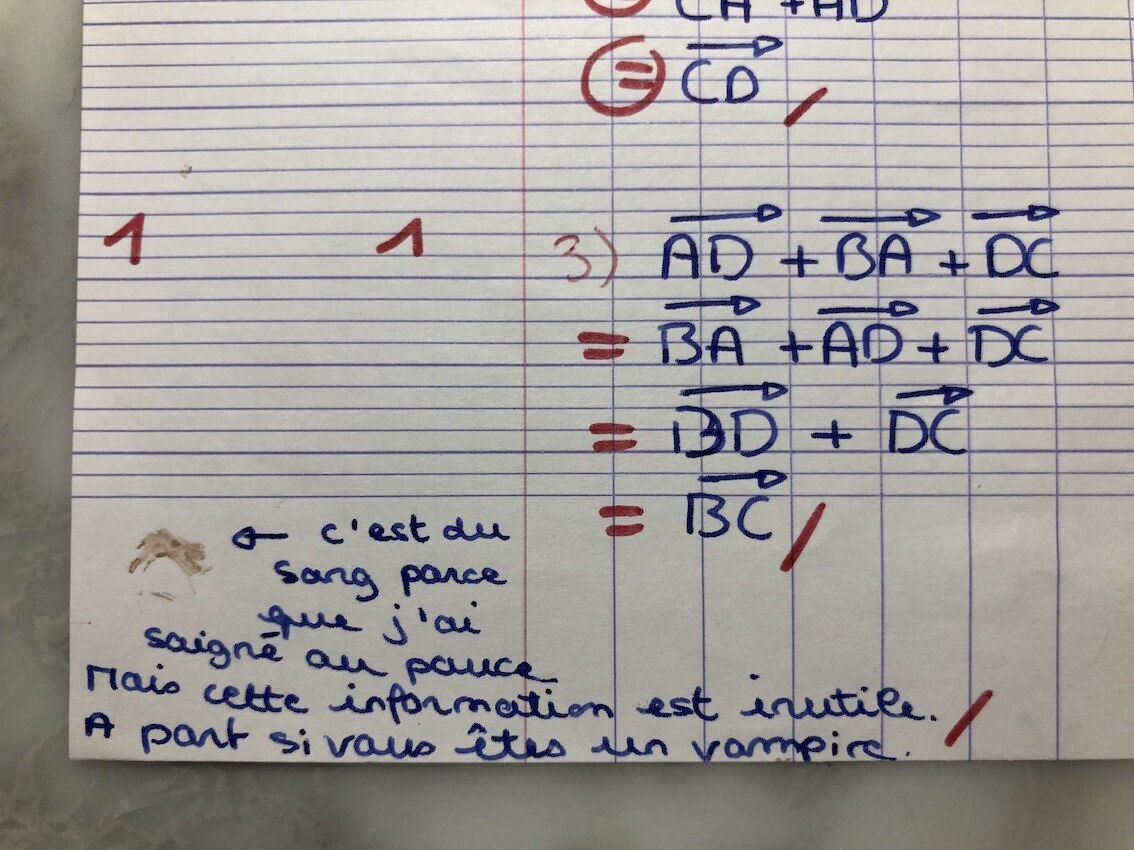 CA + AD
= CD
1 1 3) AD + BA + DC
= BA + AD + DC
= BD + DC
= BC
← c'est du
sang parce
que j'ai
saigné au pouce
Mais cette information est inutile.
A part si vous êtes un vampire.